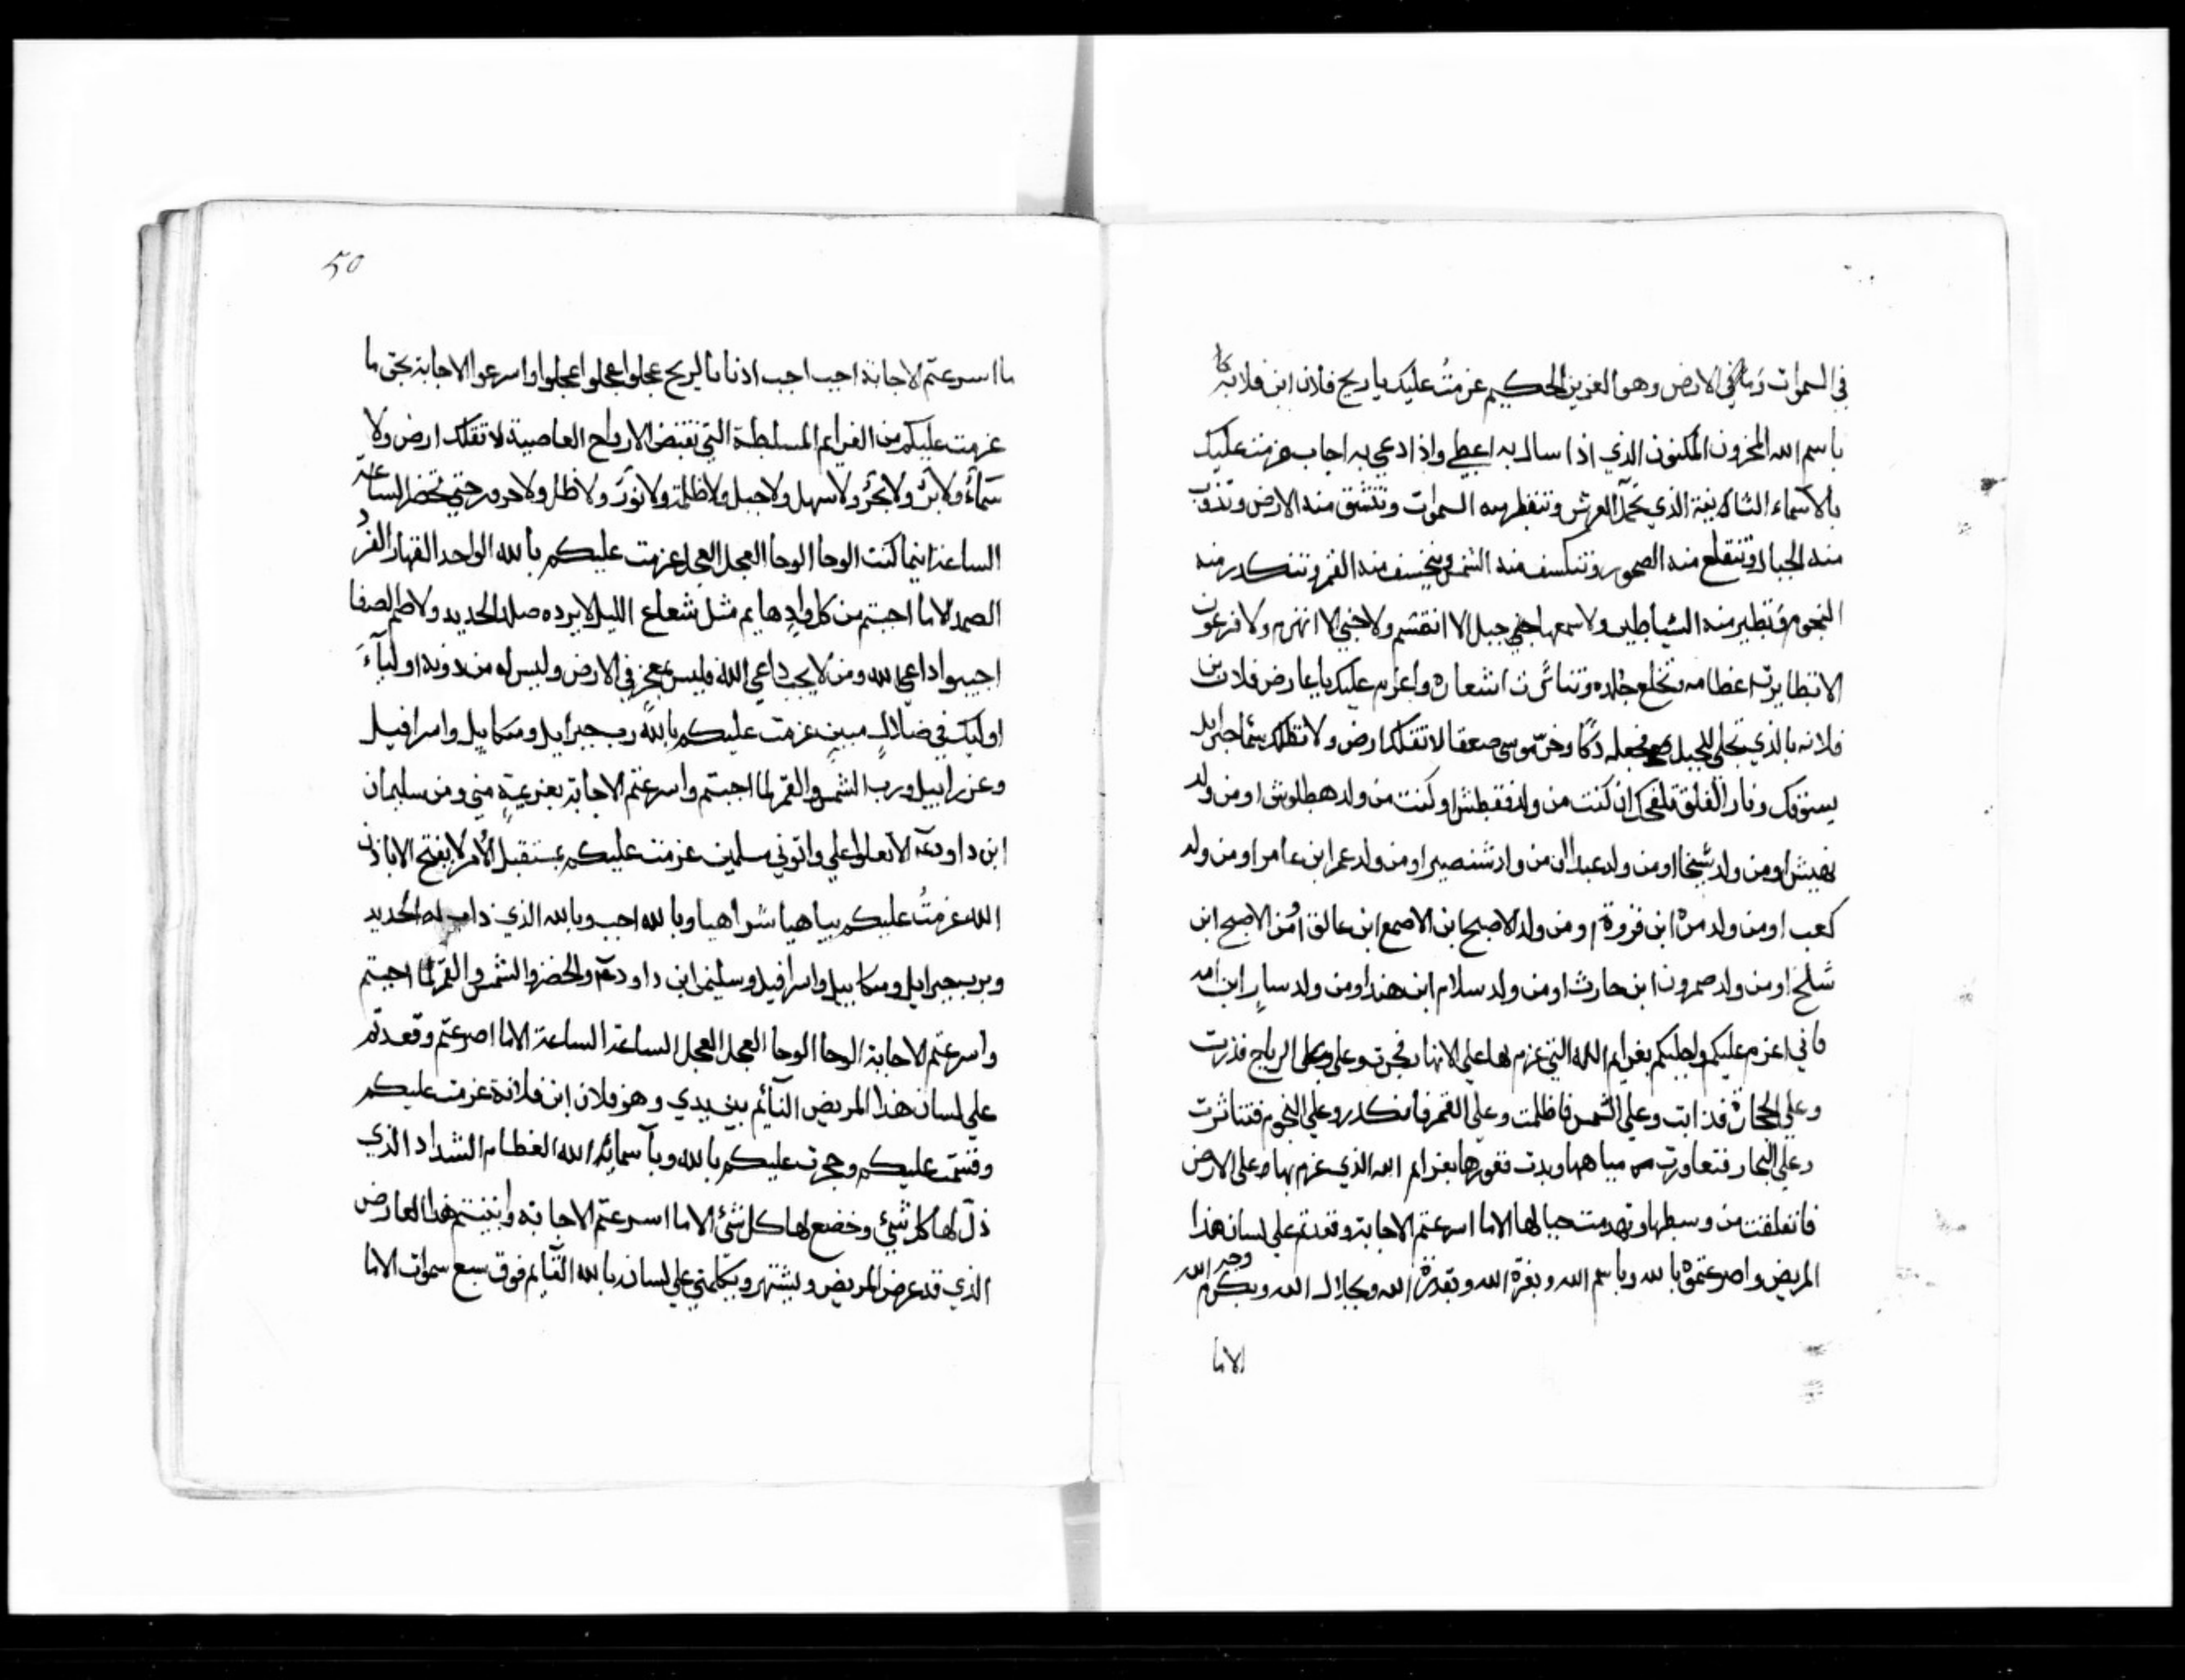 في السموات وما في الارض وهو العزيز الحكيم عزمتُ عليك يا ريح فلان ابن فلانه
باسم الله المخزون المكنون الذي اذا سال به اعطي واذا دعي به اجاب عزمت عليك
بالاسماء الثمانية الذي تحمل العرش وتنفطر منه السموات وتنشق منه الارض وتذوب
منه الجبال وتنقلع منه الصخور وتنكسف منه الشمس وينخسف منه القمر وتنكدر منه
النجوم وتطير منه الشياطين ولا سمعها جبل الا انقسم ولا جني الا انهزم ولا فرعون
الا تطايرت عظامه وتخلع جلده وتناثرت اشعاره واعزم عليك يا عارض فلان بن
فلانه بالذي تجلي للجبل فجعله دكا وخرّ موسي صعقا لا تقلك ارض ولا تظلك سما جبرايل
يسوقك ونار القلق تلفحك ان كنت من ولد فقطش او كنت من ولد هطلوش او من ولد
او من ولد شيخا او من ولد عبد الـ من ولد شنصير او من ولد عمر ابن عامر او من ولد
كعب او من ولد مرة ابن فزورة او من ولد الاصبح ابن الاصمع ابن عالق او من الاصبح ابن
شلخ او من ولد صمرون ابن حارث او من ولد سلام ابن هند او من ولد سار ابن امه
فاني اعزم عليكم بعزايم الله التي عزم بها علي الانهار فجرت وعلي الرياح فذرت
وعلي الحجارة فذابت وعلي الشمس فاظلمت وعلي القمر فانكدر وعلي النجوم فتناثرت
وعلي البحار فتعاورت مياهها وبدت قعورها بعزايم الله الذي عزم بها علي الارض
فانفلقت من وسطها وتهدمت جبالها الا ما اسرعتم الاجابة وقعدتم علي لسان هذا
المريض واصرعتموه بالله وباسم الله وبعزة الله وبقدرة الله وبجلال الله وبكرم وجه الله
الا ما
50
ما اسرعتم الاجابة اجب اجب ادنا يا ايها الريح عجلوا عجلوا اعجلوا واسرعوا الاجابة بحق ما
عزمت عليكم من العزايم المسلطة التي تقبض الارواح العاصية لا تقلك ارض ولا
سماءٌ ولا برٌ ولا بحرٌ ولا سهل ولا جبل ولا ظلمة ولا نورٌ ولا ظل ولا حرور حتي تحضر الساعة
الساعة اينما كنت الوحا الوحا العجل العجل عزمت عليكم بالله الواحد القهار الفرد
الصمد الا ما اجبتم من كل وادٍ هايم مثل شعاع الليل لا يرده صلد الحديد ولا صم الصفا
اجيبوا داعي الله ومن لا يجب داعي الله فليس بمعجزٍ في الارض وليس له من دونه اولياءَ
اوليك في ضلالٍ مبينٍ عزمت عليكم بالله رب جبرايل وميكاييل واسرافيل
وعزراييل ورب الشمس والقمر لما اجبتم واسرعتم الاجابة بعزيمةٍ مني ومن سليمان
ابن داود عم الا تعلوا علي واتوني مسلمين عزمت عليكم بمستقبل الامر لا يفتح الا باذن
الله عزمتُ عليكم بياهيا شراهيا وبالله اجب وبالله الذي ذاب له الحديد
وبرب جبرايل وميكاييل واسرافيل وسليمن ابن داود عم والخضر والشمس والقمر لما اجبتم
واسرعتم الاجابة الوحا الوحا العجل العجل الساعة الساعة الا ما اصرعتم وقعدتم
علي لسان هذا المريض النائم بين يدي وهو فلان ابن فلانة عزمت عليكم
وقسمت عليكم وحجرت عليكم بالله وباسمائه الله العظام الشداد الذي
ذلّ لها كل شيٍ وخضع لها كل شي الا ما اسرعتم الاجابة واتيتم هذا العارض
الذي قد عرض المريض ويشتهر ويكلمني علي لسانه بالله القايم فوق سبع سموات الا ما